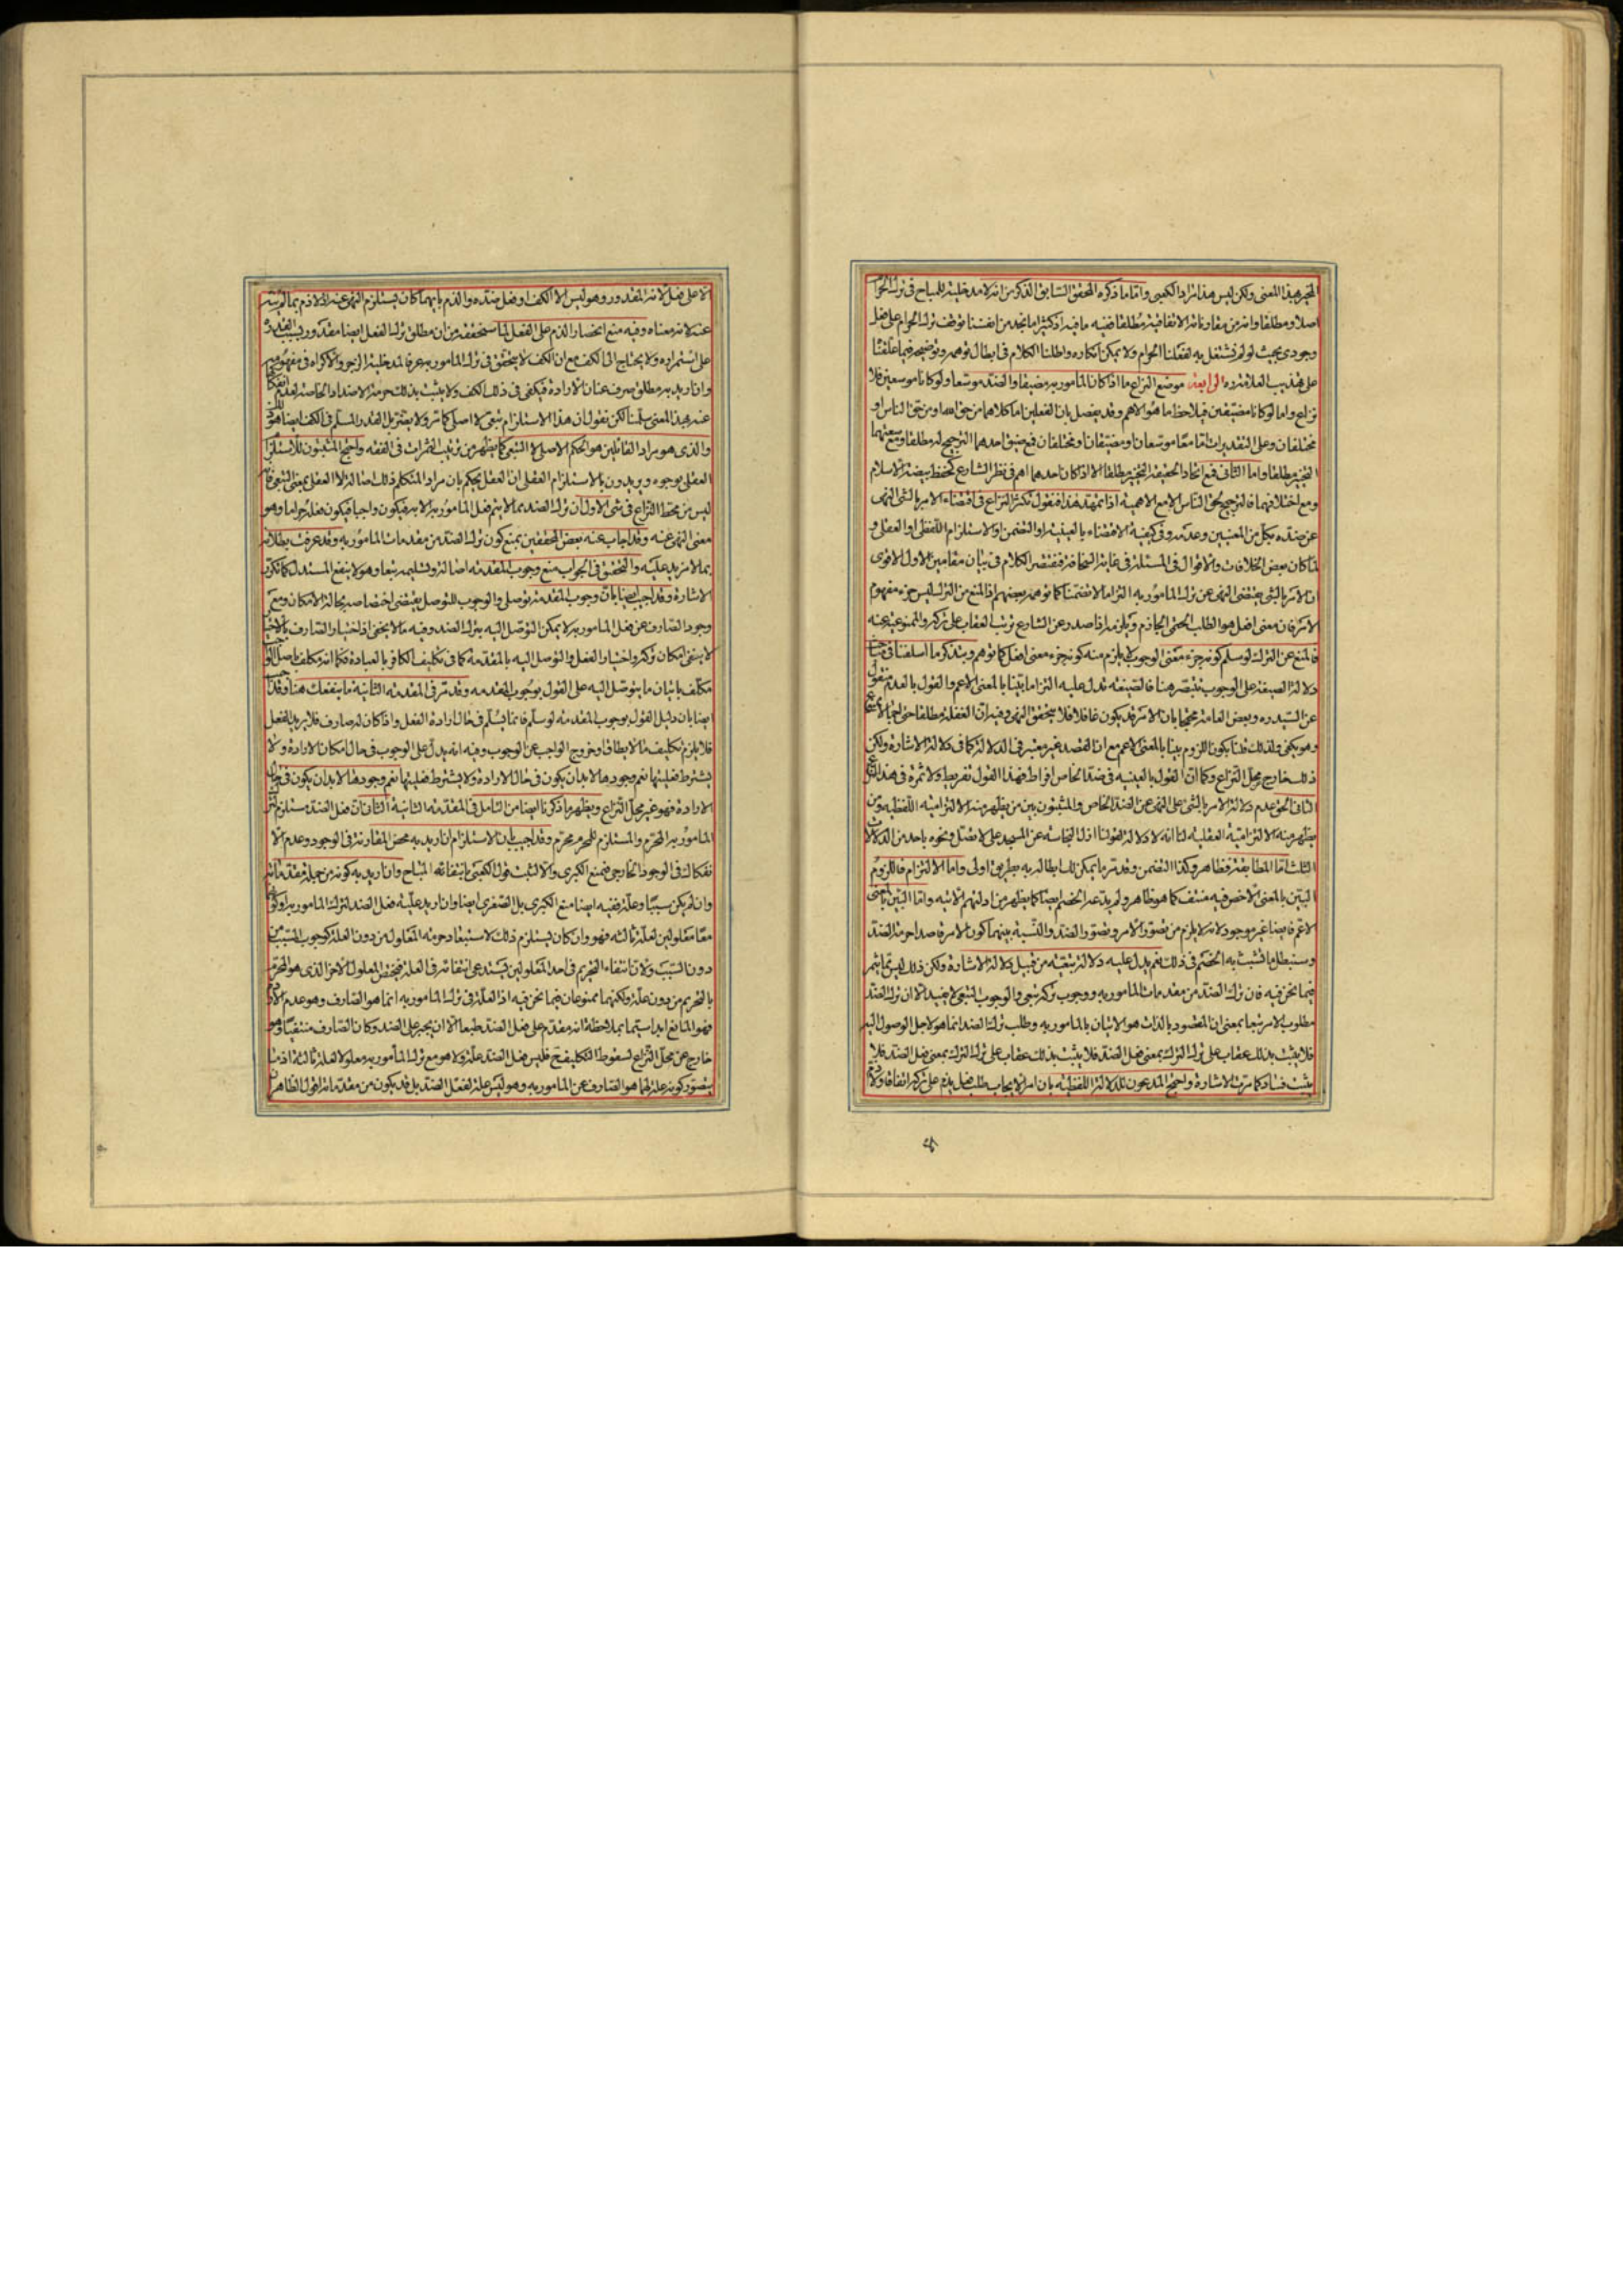 المخير بهذا المعنى ولكن ليس هذا مراد الكعبي واما ما ذكره المحقق السابق الذكر من انه لا مدخلية للمباح في ترك الحرام
اصلا ومطلقا وانه من مقارناته الاتفاقية مطلقا ففيه ما فيه اذ كثيرا ما نجد من انفسنا توقف ترك الحرام على فعل
وجودي بحيث لو لم نشتغل به لفعلنا الحرام ولا يمكن انكاره واطلنا الكلام في ابطال توهمه وتوضيحه فيما علقنا
على تهذيب العلامة ره الرابعة موضع النزاع ما اذا كان المأمور به مضيقا والضد موسعا ولو كانا موسعين فلا
نزاع واما لو كانا مضيقين فيلاحظ ما هو الاهم وقد يفصل بان الفعلين اما كلاهما من حق الله او من حق الناس او
مختلفان وعلى التقديرات اما معا موسعان او مضيقان او مختلفان فمع ضيق احدهما الترجيح له مطلقا ومع سعتهما
التخيير مطلقا واما الثاني فمع اتحاد الحقيقة التخيير مطلقا الا اذا كان احدهما اهم في نظر الشارع كحفظ بيضة الاسلام
ومع اختلافهما فالترجيح لحق الناس الا مع الاهمية اذا تمهد هذا فنقول تكثر النزاع في اقتضاء الامر بالشئ النهي
عن ضده بكل من المعنيين وعدمه وفي كيفية الاقتضاء بالعينية او التضمن او الاستلزام اللفظي او العقلي و
لما كان بعض الخلافات والاقوال في المسئلة في غاية السخافة فنقتصر الكلام في بيان مقامين الاول الاقوى
ان الامر بالشئ يقتضي النهي عن ترك المأمور به التزاما لا تضمنا كما توهمه بعضهم اذ المنع من الترك ليس جزء مفهوم
الامر فان معنى افعل هو الطلب الحتمي الجازم ويلزمه اذا صدر عن الشارع ترتب العقاب على تركه والممنوعية عنه
فالمنع عن الترك لو سلم كونه جزء معنى الوجوب لا يلزم منه كونه جزء معنى افعل كما توهم وتذكر ما اسلفنا في مباحث
دلالة الصيغة على الوجوب تتبصر هنا فالصيغة تدل عليه التزاما بينا بالمعنى الاعم والقول بالعدم منقول
عن السيد ره وبعض العامة محتجا بان الامر قد يكون غافلا فلا يتحقق النهي وفيه ان الغفلة مطلقا حتى اجمالا ممنوع
وهو يكفي ولذلك قلنا بكون اللزوم بينا بالمعنى الاعم مع ان القصد غير معتبر في الدلالة كما في دلالة الاشارة ولكن
ذلك خارج محل النزاع وكما ان القول بالعينية في ضد الخاص افراط فهذا القول تفريط ولا ثمرة في هذا النزاع
الثاني الحق عدم دلالة الامر بالشئ على النهي عن الضد الخاص والمثبتون بين من يظهر منه الالتزامية اللفظية ومن
يظهر منه الالتزامية العقلية لنا انه لا دلالة لقولنا ازل النجاسة عن المسجد على لا تصل ونحوه باحد من الدلالات
الثلث اما المطابقة فظاهر وكذا التضمن وقد مر ما يمكنك ابطاله به بطريق اولى واما الالتزام فاللزوم
البين بالمعنى الاخص فيه منتف كما هو ظاهر ولم يدعه الخصم ايضا كما يظهر من ادلتهم الاتية واما البين بالمعنى
الاعم فايضا غير موجود لانه لا يلزم من تصور الامر وتصور الضد والنسبة بينهما كون الامر قاصدا حرمة الضد
وسنبطل ما تشبث به الخصم في ذلك نعم يدل عليه دلالة تبعية من قبيل دلالة الاشارة ولكن ذلك ليس مما يثمر
فيما نحن فيه فان ترك الضد من مقدمات المأمور به ووجوب تركه تبعي والوجوب التبعي لا يفيد الا ان ترك الضد
مطلوب الامر تبعا بمعنى ان المقصود بالذات هو الاتيان بالمأمور به وطلب ترك الضد انما هو لاجل الوصول اليه
فلا يثبت بذلك عقاب على ترك الترك بمعنى فعل الضد فلا يثبت بذلك عقاب على ترك الترك بمعنى فعل الضد فلا
يثبت فساد كما مرت الاشارة واحتج المدعون للدلالة اللفظية بان امر الايجاب طلب فعل يذم على تركه اتفاقا ولا ذم
الا على فعل لانه المقدور وهو ليس الا الكف او فعل ضده والذم بايهما كان يستلزم النهي عنه اذ لا ذم بما لم ينه
عنه لانه معناه وفيه منع انحصار الذم على الفعل لما سنحققه من ان مطلق ترك الفعل ايضا مقدور بسبب القدرة
على استمراره ولا يحتاج الى الكف مع ان الكف لا يتحقق في ترك المأمور به عرفا لمدخلية الزجر والاكراه في مفهومه
وان اريد به مطلق صرف عنان الارادة فيكفي في ذلك الكف ولا يثبت بذلك حرمة الاضداد الخاصة لعدم انفكاك
عنه بهذا المعنى سلمنا لكن نقول ان هذا الاستلزام تبعي لا اصلي كما مر ولا يضرنا بل القدر المسلم في الكف ايضا هو
والذي هو مراد القائلين هو الحكم الاصلي لا التبعي كما يظهر من ترتيب الثمرات في الفقه واحتج المثبتون للاستلزام
العقلي بوجوه ويريدون بالاستلزام العقلي ان العقل يحكم بان مراد المتكلم ذلك اصالة لا العقلي بمعنى التبعي فانه
ليس من محط النزاع في شئ الاول ان ترك الضد مما لا يتم فعل المأمور به الا به فيكون واجبا فيكون فعله حراما وهو
معنى النهي عنه وقد اجاب عنه بعض المحققين بمنع كون ترك الضد من مقدمات المأمور به وقد عرفت بطلانه
بما لا مزيد عليه والتحقيق في الجواب منع وجوب المقدمة اصالة وتسليمه تبعا وهو لا ينفع المستدل كما تكرر
الاشارة وقد اجيب ايضا بان وجوب المقدمة توصلي والوجوب للتوصل يقتضي اختصاصه بحالة الامكان ومع
وجود الصارف عن فعل المأمور به لا يمكن التوصل اليه بترك الضد وفيه ما لا يخفى اذ اختيار الصارف بالاختيار
لا ينفي امكان تركه واختيار الفعل والتوصل اليه بالمقدمة كما في تكليف الكافر بالعبادة فكما انه مكلف باصل الواجب
مكلف باتيان ما يتوصل اليه على القول بوجوب المقدمة وقد مر في المقدمة الثانية ما ينفعك هنا وقد اجيب
ايضا بان دليل القول بوجوب المقدمة لو سلم فانما يسلم في حال ارادة الفعل واذا كان له صارف فلا يريد الفعل
فلا يلزم تكليف ما لا يطاق او خروج الواجب عن الوجوب وفيه انه يدل على الوجوب في حال امكان الارادة ولا
يشترط فعليتها نعم وجودها لا بد ان يكون في حال الارادة ولا يشترط فعليتها نعم وجودها لا بد ان يكون في حال
الارادة فهو غير محل النزاع ويظهر ما ذكرنا ايضا من التامل في المقدمة الثانية الثاني ان فعل الضد مستلزم لترك
المأمور به المحرم والمستلزم للمحرم محرم وقد اجيب بان الاستلزام ان اريد به محض المقارنة في الوجود وعدم الا
نفكاك في الوجود الخارجي فنمنع الكبرى والا لثبت قول الكعبي بانتفاء المباح وان اريد به كونه من جملة مقدماته
وان لم يكن سببا وعلة ففيه ايضا منع الكبرى بل الصغرى ايضا وان اريد علية فعل الضد لترك المأمور به او كونهما
معا معلولين لعلة ثالثة فهو وان كان يستلزم ذلك لاستبعاد حرمة المعلول من دون العلة كوجوب المسبب من
دون السبب ولان انتفاء التحريم في احد المعلولين يستدعي انتفائه في العلة فيختص المعلول الاخر الذي هو المحرم
بالتحريم من دون علة ولكنهما ممنوعان فيما نحن فيه اذ العلة في ترك المأمور به انما هو الصارف وهو عدم الارادة
فهو المانع ابدا سيما بملاحظة انه مقدم على فعل الضد طبعا الا ان يجبر على الضد وكان الصارف منتفيا وهو
خارج عن محل النزاع لسقوط التكليف ح فليس فعل الضد علة ولا هو مع ترك المأمور به معلولا لعلة ثالثة اذ ما
يتصور كونه علة لهما هو الصارف عن المأمور به وهو ليس علة لفعل الضد بل قد يكون من مقدماته اقول الظاهر ان